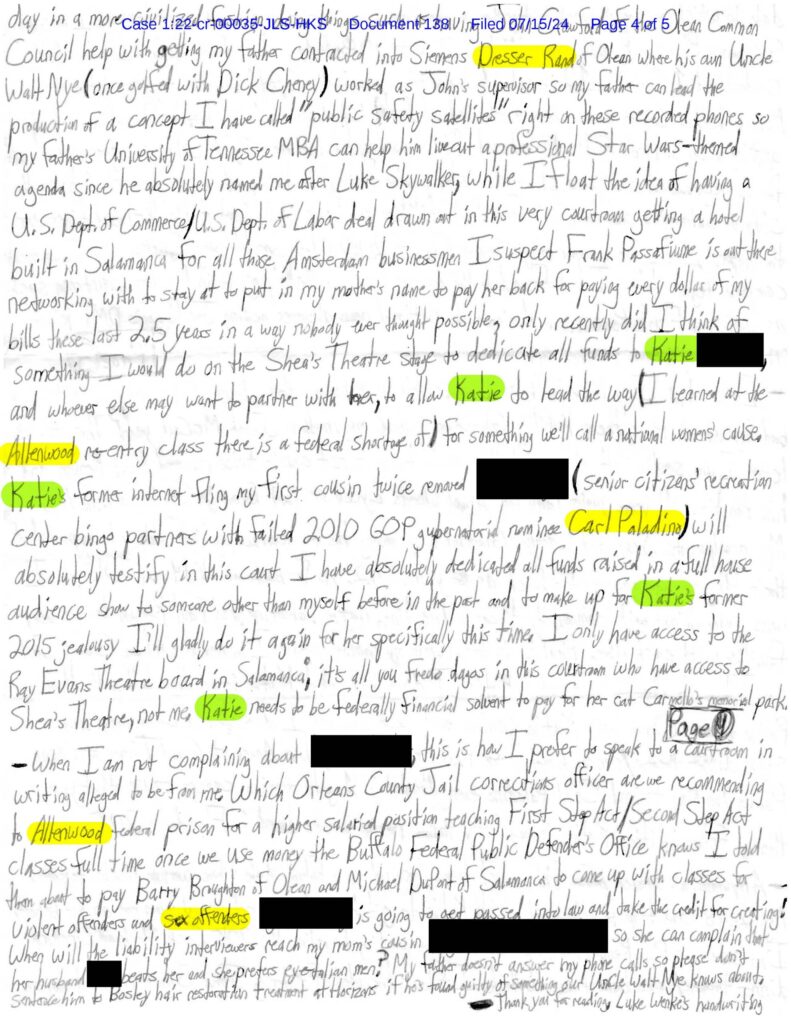 day in a more civilized fashion doing things such as having John Crawford of the Olean Common
Case 1:22-cr-00035-JLS-HKS Document 138 Filed 07/15/24 Page 4 of 5
Council help with getting my father contracted into Siemens Dresser Rand of Olean where his own Uncle
Walt Nye (once golfed with Dick Cheney) worked as John's supervisor so my father can lead the
production of a concept I have called "public safety satellites" right on these recorded phones so
my father's University of Tennessee MBA can help him live out a professional Star Wars-themed
agenda since he absolutely named me after Luke Skywalker, while I float the idea of having a
U.S. Dept. of Commerce/U.S. Dept. of Labor deal drawn out in this very courtroom getting a hotel
built in Salamanca for all those Amsterdam businessmen I suspect Frank Passafiume is out there
networking with to stay at to put in my mother's name to pay her back for paying every dollar of my
bills these last 2.5 years in a way nobody ever thought possible, only recently did I think of
something I would do on the Shea's Theatre stage to dedicate all funds to Katie ,
and whoever else may want to partner with her, to allow Katie to lead the way (I learned at the
Allenwood re-entry class there is a federal shortage of) for something we'll call a national womens' cause.
Katie's former internet fling my first cousin twice removed (senior citizens' recreation
center bingo partners with failed 2010 GOP gubernatorial nominee Carl Paladino) will
absolutely testify in this court I have absolutely dedicated all funds raised in a full house
audience show to someone other than myself before in the past and to make up for Katie's former
2015 jealousy I'll gladly do it again for her specifically this time. I only have access to the
Ray Evans Theatre board in Salamanca; it's all you fredo dagos in this courtroom who have access to
Shea's Theatre, not me. Katie needs to be federally financial solvent to pay for her cat Carmello's memorial park.
Page
- When I am not complaining about , this is how I prefer to speak to a courtroom in
writing alleged to be from me. Which Orleans County Jail corrections officer are we recommending
to Allenwood federal prison for a higher salaried position teaching First Step Act/Second Step Act
classes full time once we use money the Buffalo Federal Public Defender's Office knows I told
them about to pay Barry Broughton of Olean and Michael DuPont of Salamanca to come up with classes for
violent offenders and sex offenders is going to get passed into law and take the credit for creating!
When will the liability interviewers reach my mom's cousin so she can complain that
her husband beats her and she prefers eye-talian men? My father doesn't answer my phone calls so please don't
sentence him to Bosley hair restoration treatment at Horizons if he's found guilty of something our Uncle Walt Nye knows about.
- Thank you for reading, Luke Wenke's handwriting